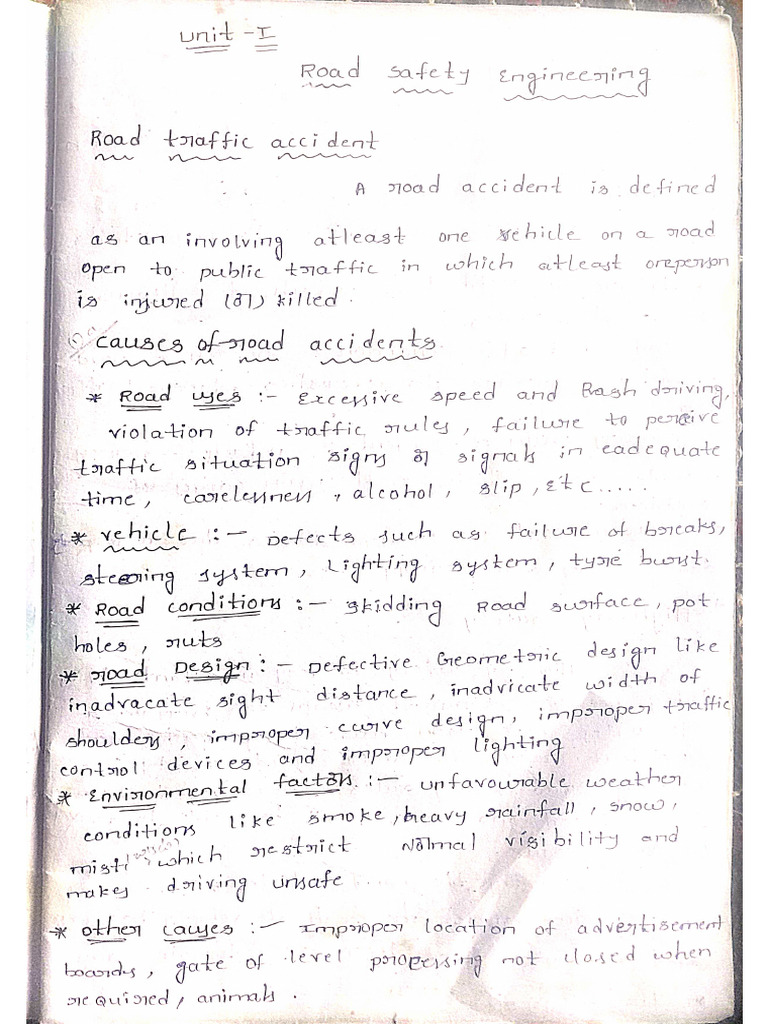 Unit - I
Road Safety Engineering
Road traffic accident
A road accident is defined
as an involving atleast one vehicle on a road
open to public traffic in which atleast oneperson
is injured (or) killed.
causes of road accidents
* Road uses :- Excessive speed and Rash driving,
violation of traffic rules, failure to perceive
traffic situation signs or signals in eadequate
time, carelessness, alcohol, slip, Etc.....
* vehicle :- Defects such as failure of breaks,
steering system, lighting system, tyre burst.
* Road conditions :- skidding Road surface, pot
holes, ruts
* road Design :- Defective Geometric design like
inadvacate sight distance, inadvicate width of
shoulders, improper curve design, improper traffic
control devices and improper lighting
* Environmental factors :- unfavourable weather
conditions like smoke, heavy rainfall, snow,
mist which restrict Normal visibility and
makes driving unsafe
* other causes :- Improper location of advertisement
boards, gate of level processing not closed when
required, animals.